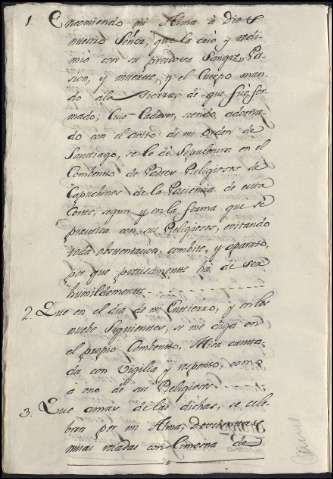 1. Encomiendo mi Alma à Dios
nuestro Señor, que la crio y redi-
mio con su preciosa Sangre, Pa-
sion, y muerte, y el Cuerpo man-
do a la tierra de que fue for-
mado, Cuio Cadaver, siendo adorna-
do con el de mi Orden de
Santiago, se le de Sepultura en el
Combento de Padres Religiosos
Capuchinos de la Paciencia de esta
Corte, segun y en la forma que se
practica con sus Religiosos, evitando
toda obstentacion, combite, y aparato,
por que precisamente ha de ser
humildemente
2. Que en el dia de mi Entierro, y en los
nueve siguientes, se me diga en
el propio Combento, Misa canta-
da con Vigilia y responso, como
a uno de sus Religiosos
3. Que amas de las dichas, se cele-
bren por mi Alma,
misas rezadas con limosna de